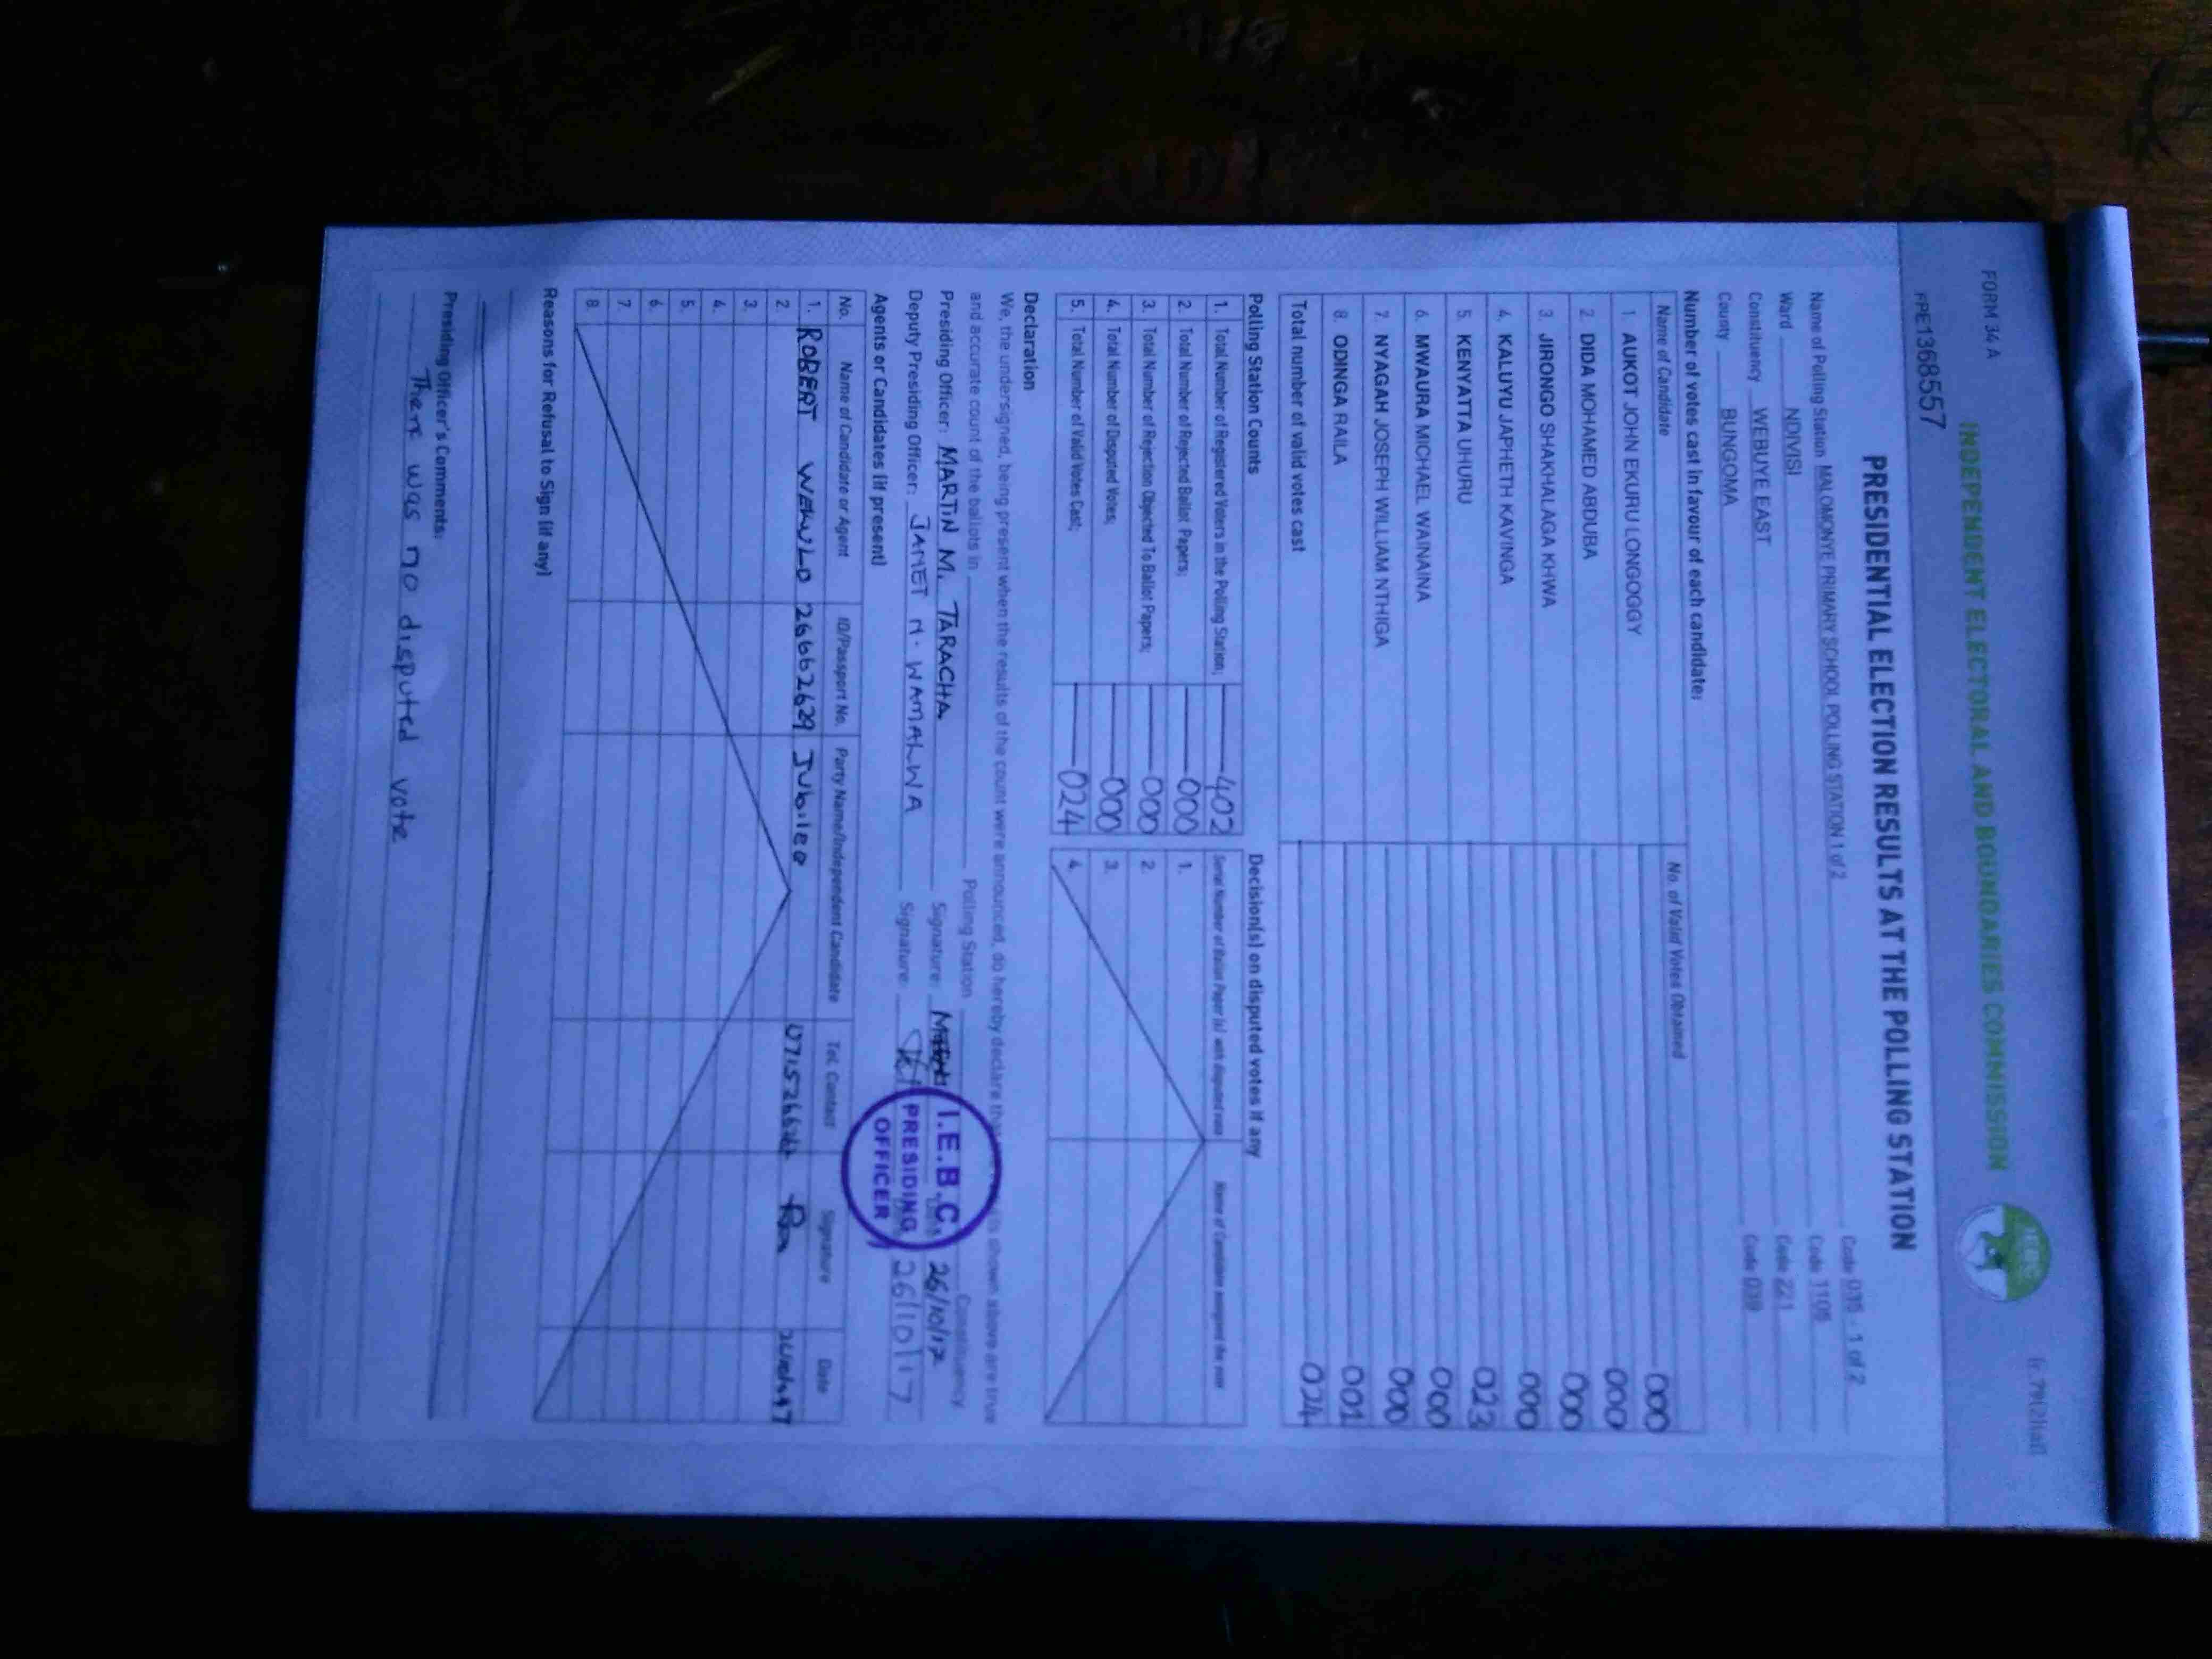 FORM 34 A
INDEPENDENT ELECTORAL AND BOUNDARIES COMMISSION
PPE1368557
PRESIDENTIAL ELECTION RESULTS AT THE POLLING STATION
Name of Polling Station MALOMONYE PRIMARY SCHOOL POLLING STATION 1 of 2 Code 035 - 1 of 2
Ward NDIVISI Code 1105
Constituency WEBUYE EAST Code 221
County BUNGOMA Code 039
Number of votes cast in favour of each candidate:
Name of Candidate No. of Valid Votes Obtained
1. AUKOT JOHN EKURU LONGOGGY 000
2. DIDA MOHAMED ABDUBA 000
3. JIRONGO SHAKHALAGA KHWA 000
4. KALUYU JAPHETH KAVINGA 000
5. KENYATTA UHURU 023
6. MWAURA MICHAEL WAINAINA 000
7. NYAGAH JOSEPH WILLIAM NTHIGA 000
8. ODINGA RAILA 001
Total number of valid votes cast 024
Polling Station Counts
1. Total Number of Registered Voters in the Polling Station; 402
2. Total Number of Rejected Ballot Papers; 000
3. Total Number of Rejection Objected To Ballot Papers; 000
4. Total Number of Disputed Votes; 000
5. Total Number of Valid Votes Cast; 024
Decision(s) on disputed votes if any
Serial Number of Ballot Paper (s) with disputed vote Name of Candidate assigned the vote
1.
2.
3.
4.
Declaration
We, the undersigned, being present when the results of the count were announced, do hereby declare that the shown above are true
and accurate count of the ballots in Polling Station Constituency
Presiding Officer: MARTIN M. TARACHA Signature: 26/10/17
Deputy Presiding Officer: JANET N. WAMALWA Signature: 26/10/17
I.E.B.C.
PRESIDING
OFFICER
Agents or Candidates (if present)
No. Name of Candidate or Agent ID/Passport No. Party Name/Independent Candidate Tel. Contact Signature Date
1. ROBERT WEKULO 26662629 Jubilee
2.
3.
4.
5.
6.
7.
8.
Reasons for Refusal to Sign (if any)
Presiding Officer's Comments:
There was no disputed vote